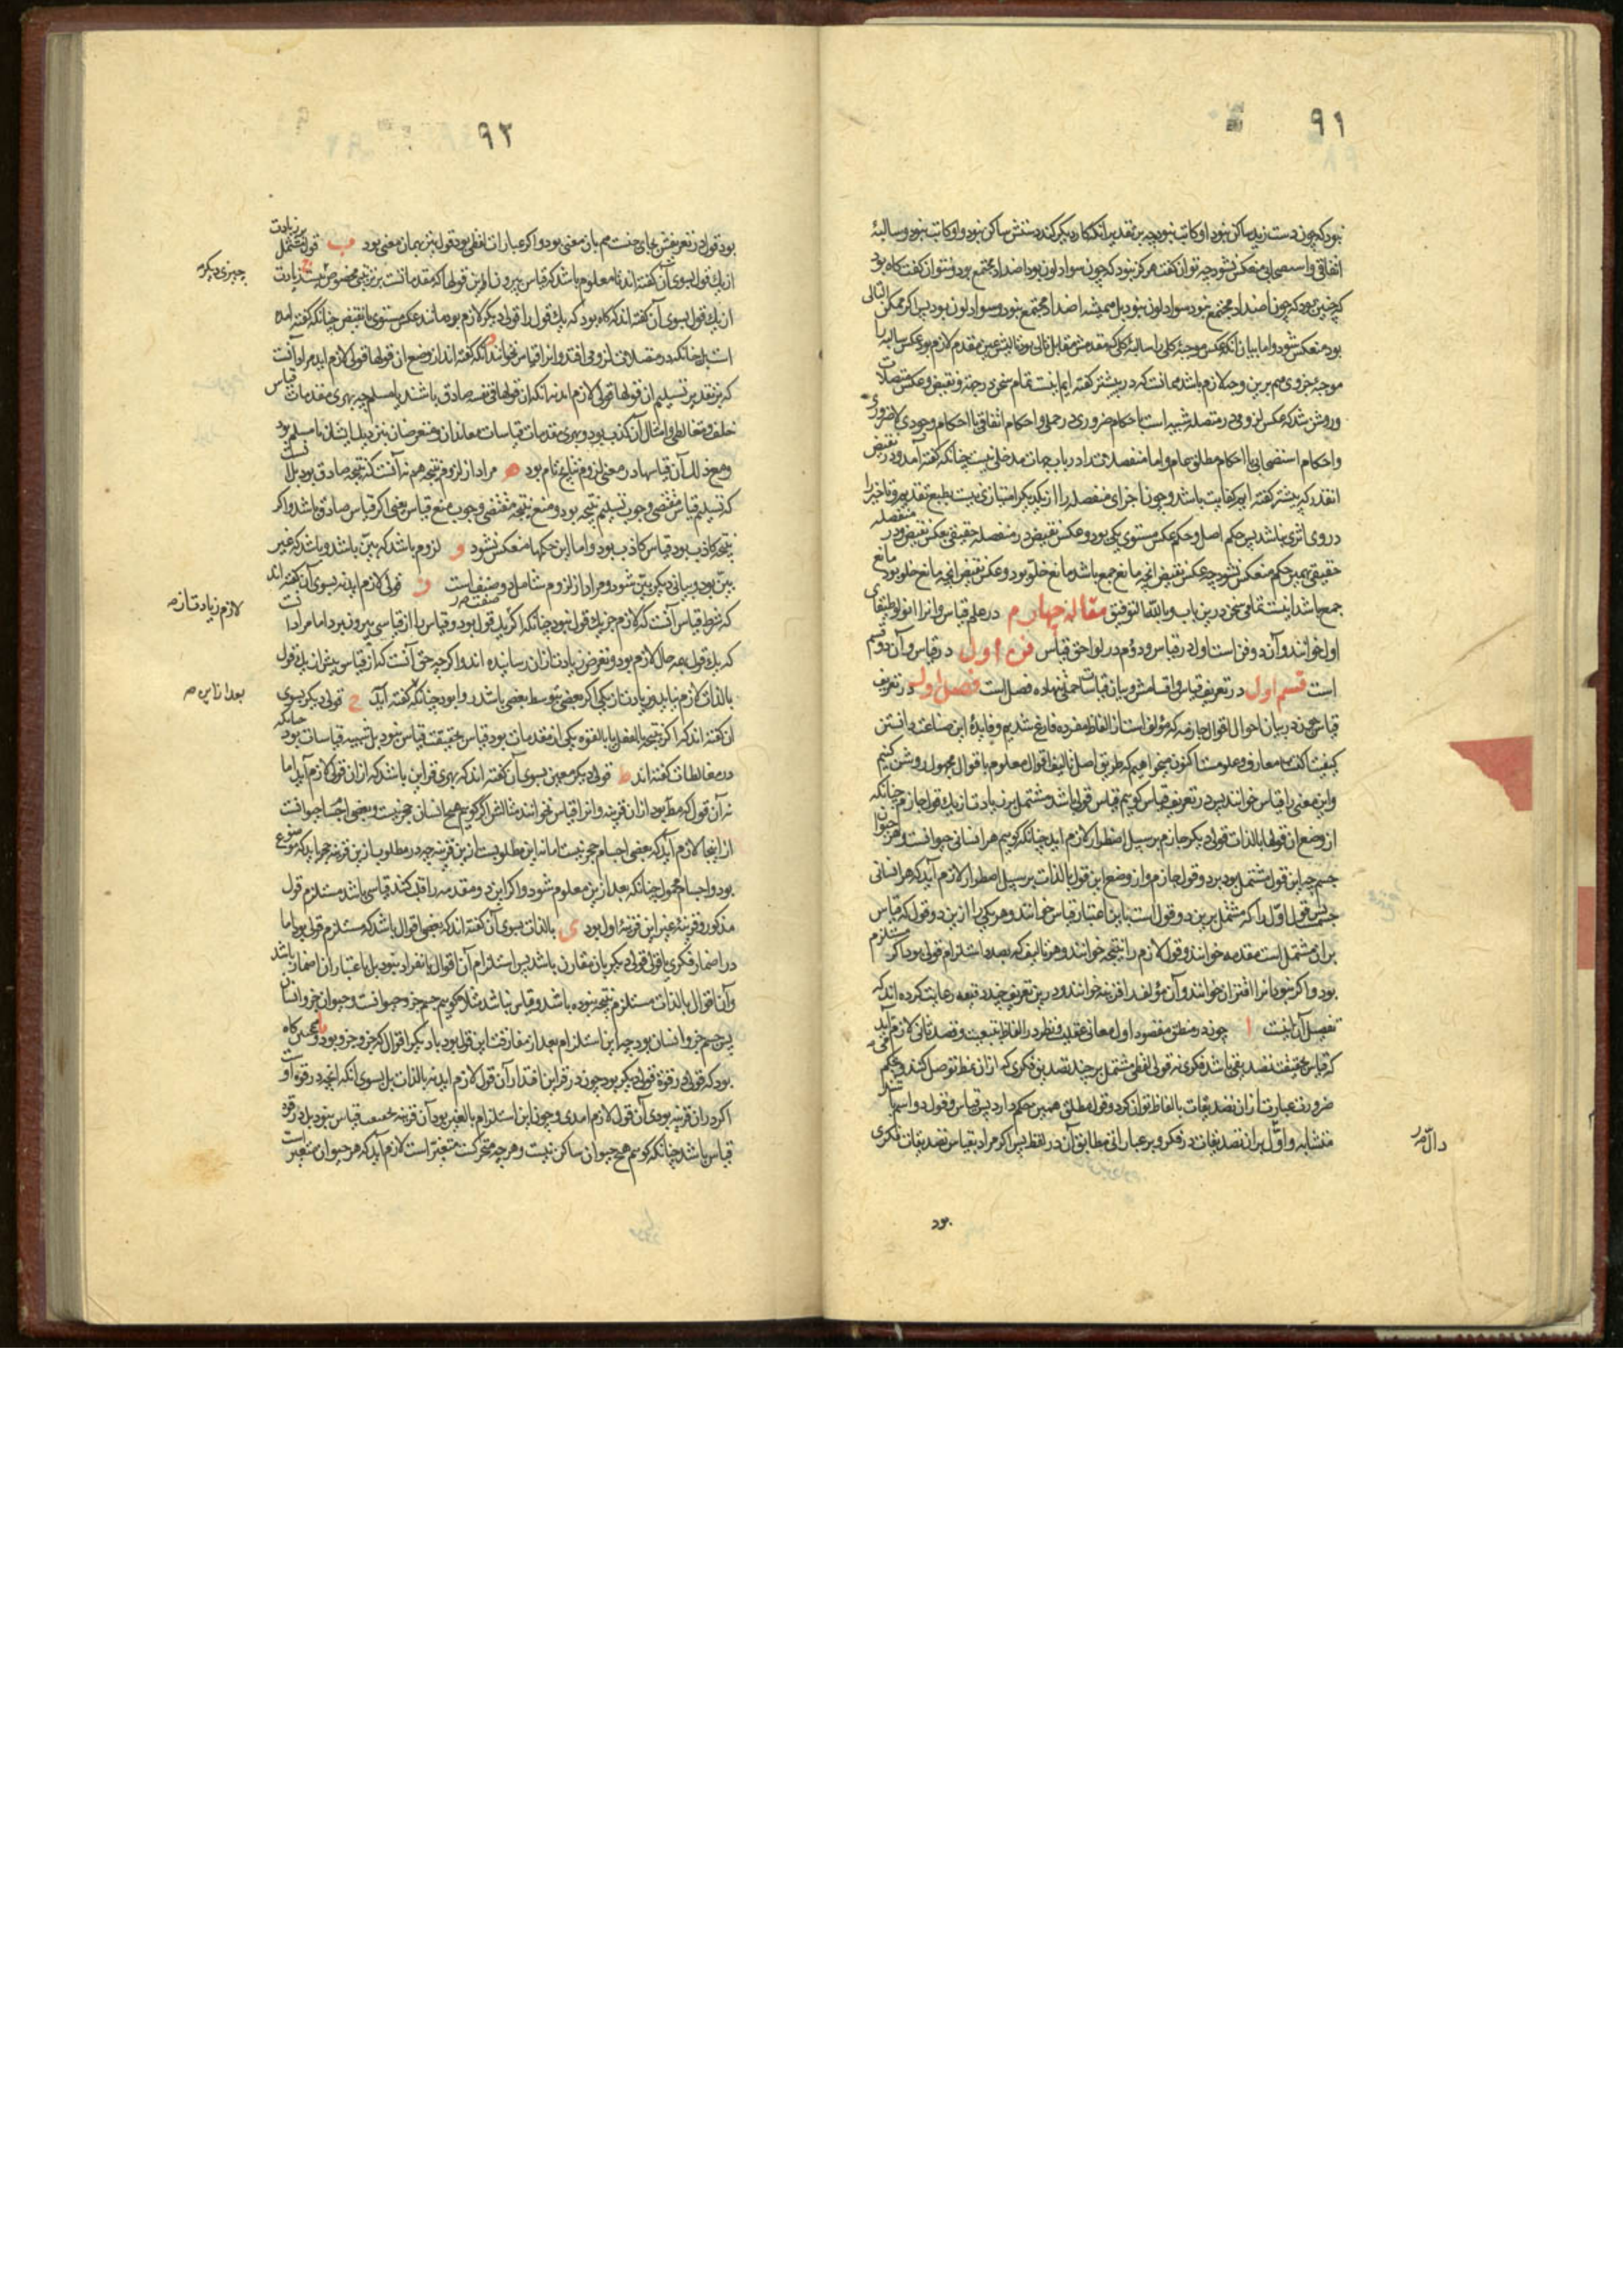 ٩١
نبود که چون دست زید ساکن نبود او کاتب نبود چه بر تقدیر آنکه کار دیگر کند دستش ساکن نبود و او کاتب نبود و سالبهٔ
اتفاقی و استصحابی منعکس نشود چه توان گفت هرگز نبود که چون سواد لون بود اضداد مجتمع بود و نتوان گفت گاه بود
که چنین بود که چون اضداد مجتمع نبود سواد لون نبود بل همیشه اضداد مجتمع نبود و سواد لون بود پس اگر ممکن التالی
بود منعکس شود و اما بیان آنکه عکس موجبهٔ کلی با سالبهٔ کلی که مقدمش مقابل تالی بود و تالیش عین مقدم لازم بود عکس سالبه را
موجبهٔ جزوی هم برین وجه لازم باشد همانست که در پیشتر گفته ایم اینست تمام سخن در جهة و نقیض و عکس متصلات
و روشن شد که عکس لزومی در متصله شبیه است باحکام ضروری در حملی و احکام اتفاقی باحکام وجودی لاضروری
و احکام استصحابی باحکام مطلق عام و اما منفصلات را در باب جهات مدخلی نیست چنانکه گفته آمد و در نقیض
انقدر که پیشتر گفته ایم کفایت باشد و چون اجزای منفصله را از یکدیگر امتیازی نیست بطبع تقدیم و تاخیر را
در وی اثری نباشد پس حکم اصل و حکم عکس مستوی یکی بود و عکس نقیض در منفصله حقیقی بعکس نقیض در منفصله
حقیقی بهمین حکم منعکس نشود چه عکس نقیض آنچه مانع جمع باشد مانع خلو بود و عکس نقیض آنچه مانع خلو بود مانع
جمع باشد اینست تمامی سخن درین باب و بالله التوفیق مقاله چهارم در علم قیاس و انرا انولوطیقای
اول خوانند و آن دو فن است اول در قیاس و دوم در لواحق قیاس فن اول در قیاس و آن دو قسم
است قسم اول در تعریف قیاس و اقسامش و بیان قیاسات حملی نه ده فصل است فصل اول در تعریف
قیاس چون در بیان احوال اقوال جازمه که مؤلف است از الفاظ مفرده فارغ شدیم و فایدهٔ این صناعت دانستن
کیفیت اکتساب معارف و علوم است اکنون میخواهیم که طریق اصل تالیف اقوال معلوم با قوال مجهول روشن کنیم
و این معنی را قیاس خوانند پس در تعریف قیاس گوییم قیاس قولی باشد مشتمل بر زیادت از یک قول جازم چنانکه
از وضع آن قولها بالذات قولی دیگر جازم بر سبیل اضطرار لازم آید چنانکه گوییم هر انسانی حیوانست و هر حیوان
جسم چه این قول مشتمل بود بر دو قول جازم و از وضع این قول بالذات بر سبیل اضطرار لازم آید که هر انسانی
جسمست پس قول اول را که مشتمل برین دو قول است باین اعتبار قیاس خوانند و هر یکی را ازین دو قول که قیاس
بران مشتمل است مقدمه خوانند و قول لازم را نتیجه خوانند و هر تالیف که بصدد استلزام قولی بود اگر مستلزم
بود و اگر نبود انرا اقتران خوانند و آن مؤلف را قرینه خوانند و درین تعریف چند دقیقه رعایت کرده اند که
تفصیل آن اینست ا چون در منطق مقصود اول معانی عقلیست و نظر در الفاظ بتبعیت و قصد ثانی لازم آید
که قیاس بحقیقت تصدیقی باشد فکری نه قولی لفظی مشتمل بر چند تصدیق فکری که از ان بمطلوب توصل کنند و بحکم آنکه
ضرورت عبارت از ان تصدیقات بالفاظ توان کرد و قول مطلق همین حکم دارد پس قیاس و قول دو اسم باشند
متشابه و اول بران تصدیقات در فکر و بر عباراتی مطابق آن در لفظ پس اگر مراد بقیاس تصدیقات فکری
دال صر
بود
٩٢
بود قول در تعریفش بجای جنس هم بان معنی بود و اگر عبارات لفظی بود قول نیز بهمان معنی بود ب قول مشتمل بر زیادت
از یک قول بسوی آن گفته اند تا معلوم باشد که قیاس بیرون از این قولها که مقدماتست بر ترتیبی مخصوص نیست ج زیادت
چیزی دیگر صر
از یک قول بسوی آن گفته اند که گاه بود که یک قول را قولی دیگر لازم بود مانند عکس مستوی یا نقیض چنانکه گفته آمده
است بل چنانکه در متصلات لزومی افتد و انرا قیاس نخوانند د آنکه گفته اند از وضع ان قولها قولی لازم آید مراد آنست
که بر تقدیر تسلیم ان قولها قولی لازم آید نه آنکه ان قولها فی نفسه صادق باشند یا مسلم چه بهری مقدمات قیاس
خلف و مغالطی و امثال آن کذب بود و بهری مقدمات قیاسات معاندان و متعرضان نیز نزدیک ایشان نامسلم بود
و مع ذلک آن قیاسها در معنی لزوم نتایج تام بود ه مراد از لزوم نتیجه هم نه آنست که نتیجه صادق بود بل آنست
که تسلیم قیاس مقتضی وجوب تسلیم نتیجه بود و منع نتیجه مقتضی وجوب منع قیاس یعنی اگر قیاس صادق باشد و اگر
نتیجه کاذب بود قیاس کاذب بود و اما این حکمها منعکس نشود و لزوم باشد که بیّن باشد و باشد که غیر
بیّن بود و ببیانی دیگر بیّن شود و مراد از لزوم شامل دو صنف است ز قولی لازم آید نه بسوی آن گفته اند
که شرط قیاس آنست که لازم جز یک قول نبود چنانکه اگر یک قول بود و قیاس را از قیاسی بیرون برد اما مراد آنست
لازم زیادت از صر
که یک قول بهمه حال لازم بود و تعرض زیادت از ان رسانیده اند و اگر چه حق آنست که از قیاس بیش از یک قول
بالذات لازم نیاید و زیادت از یکی اگر بعضی بتوسط بعضی باشد روا بود چنانکه گفته آید ح قولی دیگر بسوی
بعد ازین صر
ان گفته اند که اگر نتیجه بالفعل یا بالقوه یکی از مقدمات بود قیاس بحقیقت قیاس نبود بل شبیه قیاسات بود چنانکه
در مغالطات گفته اند ط قولی دیگر معین بسوی آن گفته اند که بهری قراین باشد که ازان قولی لازم آید اما
نه آن قول که مطلوب بود از ان قرینه و انرا قیاس نخوانند مثالش اگر گوییم هیچ انسان حجر نیست و بعضی اجسام حیوانست
ازینجا لازم آید که بعضی اجسام حجر نیست اما نه این مطلوبیست ازین قرینه چه در مطلوب ازین قرینه حجر باید که موضوع
بود و اجسام محمول چنانکه بعد ازین معلوم شود و اگر این دو مقدمه را قلب کنند قیاسی باشد مستلزم قول
مذکور و قرینه غیر این قرینهٔ اول بود ی بالذات بسوی آن گفته اند که بعضی اقوال باشد که مستلزم قولی بود اما
در اضمار فکری یا قولی قولی دیگر بان مقارن باشد پس استلزام آن اقوال بانفراد نبود بل باعتبار ان اضمار باشد
و آن اقوال بالذات مستلزم نتیجه نبوده باشد و قیاس نباشد مثلا گوییم جسم جزو حیوانست و حیوان جزو انسان
پس جسم جزو انسان بود چه این استلزام بعد از مقارنت این قول بود با دیگر اقوال که جزو جزو بود و همچنین گاه
بود که قولی در قوة قولی دیگر بود چون در قراین افتد ازان قول لازم آید نه بالذات بل بسوی آنکه آنچه در قوة اوست
اگر در ان قرینه بودی آن قول لازم آمدی و چون این استلزام بالغیر بود آن قرینه بحقیقت قیاس نبود بل در قوة
قیاس باشد چنانکه گوییم هیچ حیوان ساکن نیست و هر چه متحرکست متغیر است لازم آید که هر حیوان متغیر است